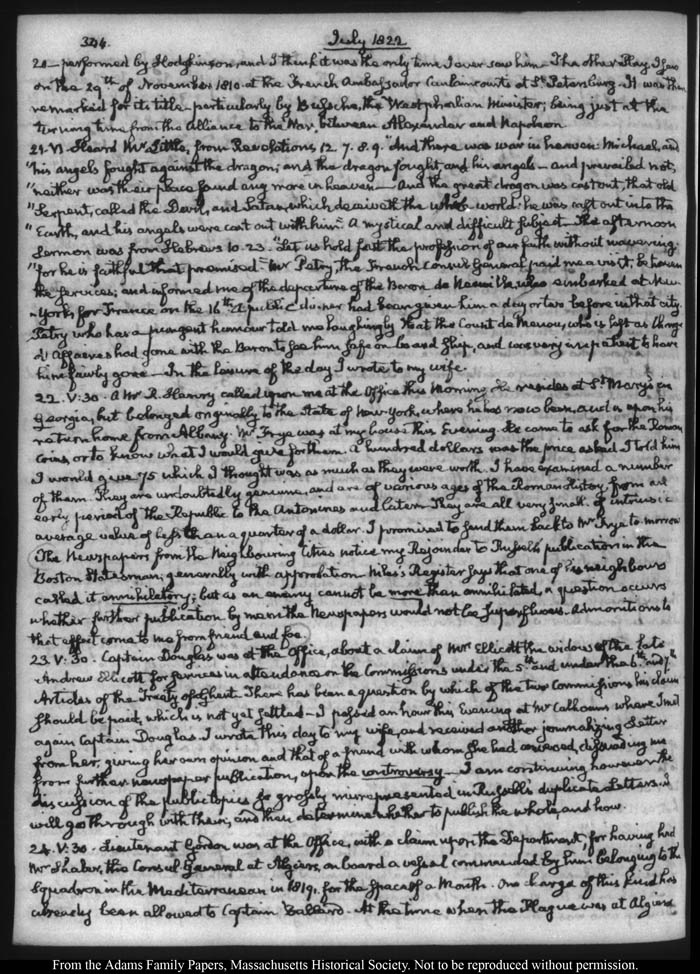 304. July 1822
performed by Hodgkinson, and I think it was the only time I ever saw him. The other Play, I saw
on the 29th of November 1810. at the French Ambassador Caulaincourt's at St. Petersburg. It was then
remarked for its title, particularly by Bussche, the Westphalian Minister; being just at the
turning time from the Alliance to the War, between Alexander and Napoleon.
21. VI. Heard Mr. Little, from Revelations 12. 7. 8. 9. "And there was war in heaven: Michael, and
"his angels fought against the dragon; and the dragon fought and his angels — and prevailed not;
"neither was their place found any more in heaven — And the great dragon was cast out, that old
"Serpent, called the Devil, and Satan, which deceiveth the whole world: he was cast out into the
"Earth, and his angels were cast out with him." A mystical and difficult subject. The afternoon
Sermon was from Hebrews 10. 23. "Let us hold fast the profession of our faith without wavering;
"for he is faithful that promised." Mr. Petry, the French Consul General paid me a visit, between
the services; and informed me of the departure of the Baron de Neuville, who embarked at New-
York for France on the 16th. A public dinner had been given him a day or two before in that city.
Petry who has a pungent humour told me laughingly that the Count de Menou, who is left as Chargé
d'Affaires had gone with the Baron to see him safe on board ship, and was very impatient to have
him fairly gone. In the leisure of the day I wrote to my wife.
22. V:30. A Mr. R. Henry called upon me at the Office this Morning. He resides at St. Mary's in
Georgia, but belonged originally to the State of New-York, where he has now been, and is upon his
return home from Albany. Mr. Frye was at my house this Evening. He came to ask for the Roman
Coins, or to know what I would give for them. A hundred dollars was the price asked. I told him
I would give 75 which I thought was as much as they were worth. I have examined a number
of them. They are undoubtedly genuine, and are of various ages of the Roman History, from an
early period of the Republic to the Antonines and later. They are all very small, of intrinsic
average value of less than a quarter of a dollar. I promised to send them back to Mr. Frye to-morrow
The Newspapers from the Neighbouring Cities notice my Rejoinder to Russell's publication in the
Boston Statesman; generally with approbation. Niles's Register says that one of his neighbours
called it annihilatory; but as an enemy cannot be more than annihilated, a question occurs
whether further publication by me in the Newspapers would not be superfluous. Admonitions to
that effect come to me from friend and foe.
23. V:30. Captain Douglas was at the Office, about a claim of Mrs. Ellicott the widow of the late
Andrew Ellicott for services in attendance on the Commissions under the 5th and under the 6th and 7th
Articles of the Treaty of Ghent. There has been a question by which of the two Commissions his claim
should be paid, which is not yet settled — I passed an hour this Evening at Mr. Calhoun's where I met
again Captain Douglas. I wrote this day to my wife, and received another journalizing Letter
from her, giving her own opinion and that of a friend with whom she had conversed, dissuading me
from further newspaper publication, upon the controversy — I am continuing however the
discussion of the public topics so grossly misrepresented in Russell's duplicate Letters. I
will go through with them, and then determine whether to publish the whole, and how.
24. V:30. Lieutenant Gordon was at the Office, with a claim upon the Department, for having had
Mr. Shaler, the Consul General at Algiers, on board a vessel commanded by him belonging to the
Squadron in the Mediterranean in 1819. for the space of a Month. One charge of this kind has
already been allowed to Captain Ballard. At the time when the Plague was at Algiers
From the Adams Family Papers, Massachusetts Historical Society. Not to be reproduced without permission.